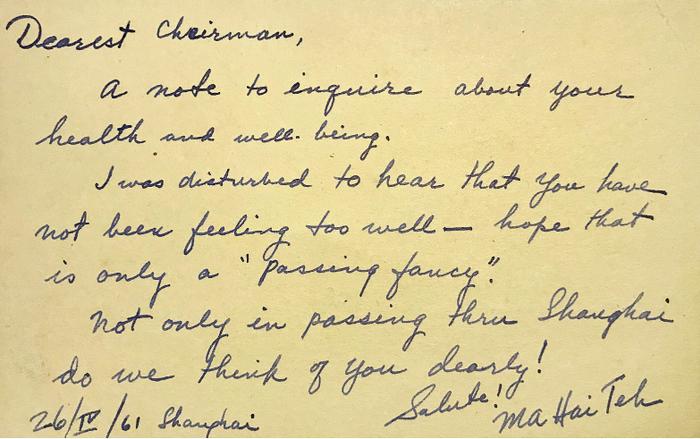 Dearest Chairman,
A note to enquire about your
health and well-being.
I was disturbed to hear that you have
not been feeling too well — hope that
is only a "passing fancy".
Not only in passing thru Shanghai
do we think of you dearly!
Salute!
26/IV/61 Shanghai Ma Hai Teh